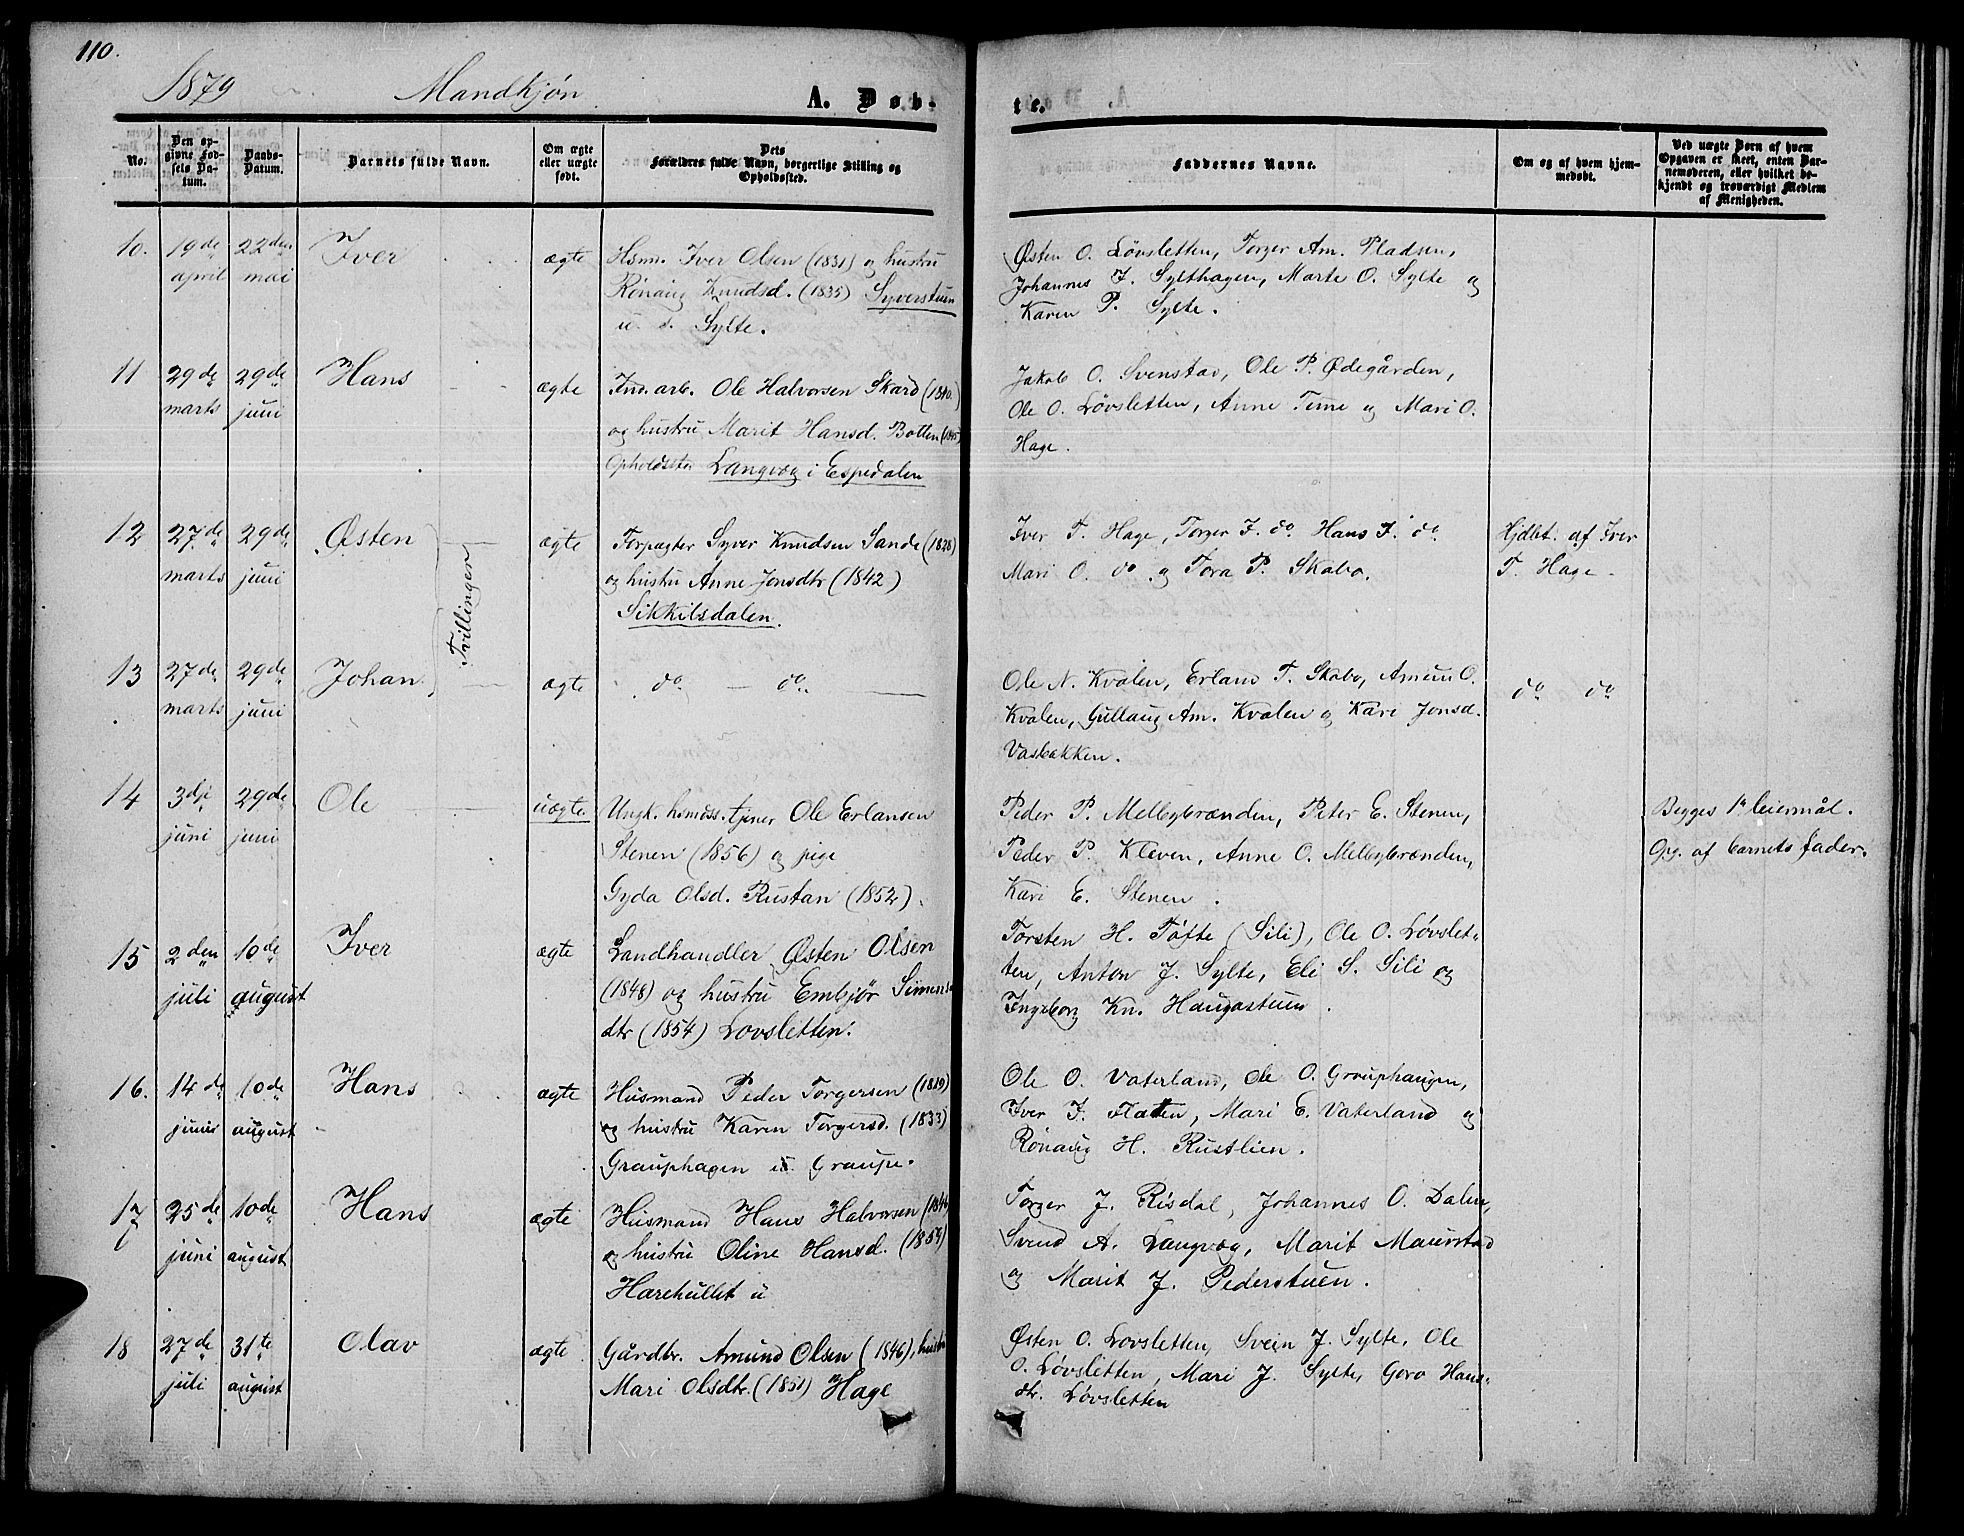 110.
1879 Mandkjøn A. Døb-
te.
No.
Den op-
givne Fød-
sels Da-
tum.
Daabs-
Datum.
Barnets fulde Navn.
Om ægte
eller uægte
født.
Dets
Forældres fulde Navn, borgerlige Stilling og
Opholdssted.
Faddernes Navne.
Om og af hvem hjem-
medøbt.
Ved uægte Børn af hvem
Opgaven er skeet, enten Bar-
nemoderen, eller hvilket be-
kjendt og troværdigt Medlem
af Menigheden.
10. 19de april 22den mai Iver ægte
Hsm. Iver Olsen (1831) og hustru
Rønaug Knudsd. (1835) Syverstuen
u. s. Sylte.
Østen O. Løvsletten, Torger Am. Pladsen,
Johannes J. Sylthagen, Marte O. Sylte og
Karen P. Sylte.
11 29de marts 29de juni Hans ægte
Ind. arb. Ole Halvorsen Skard (1840)
og hustru Marit Hansd. Botten (1845)
Opholdsste Langvæg i Espedalen
Jakob O. Svenstad, Ole P. Ødegården,
Ole O. Løvsletten, Anne Time og Mari O.
Hage.
12 27de marts 29de juni Østen Tvillinger ægte
Forpagter Syver Knudsen Sande (1828)
og hustru Anne Jonsdtr (1842)
Sikkilsdalen.
Iver T. Hage, Torger I. do. Hans I. do.
Mari O. do. og Tora P. Skabo.
Hjdbt. af Iver
T. Hage.
13 27de marts 29de juni Johan ægte
do. — do.
Ole N. Kvalen, Erland T. Skabo, Amun O.
Kvalen, Gullaug Am. Kvalen og Kari Jonsd.
Vasbakken.
do do
14 3dje juni 29de juni Ole uægte
Ungk. hsmdss. tjener Ole Erlansen
Stenen (1856) og pige
Gyda Olsd. Rustan (1852).
Peder P. Melbybrænden, Peter E. Stenen,
Peder P. Kleven, Anne O. Melbybrænden,
Kari E. Stenen.
Begges 1ste leiermål.
Opg. af barnets fader.
15 2den juli 10de august Iver ægte
Landhandler Østen Olsen
(1848) og hustru Embjør Simens
dtr (1854) Lovsletten.
Torsten H. Tofte (Sili), Ole O. Løvslet-
ten, Anton J. Sylte, Eli S. Sili og
Ingeborg Kn. Haugastuen.
16. 14de juni 10de august Hans ægte
Husmand Peder Torgersen (1819)
og hustru Karen Torgersd. (1833)
Grauphagen u. Graupe.
Ole O. Vaterland, Ole O. Grouphaugen,
Iver J. Flaten, Mari E. Vaterland og
Rønaug H. Rustlien.
17 25de juni 10de august Hans ægte
Husmand Hans Halvorsen
og hustru Oline Hansd. (1854)
Harehullet u
Torger J. Risdal, Johannes O. Dalen,
Svend A. Langvæg, Marit Maurstad
og Marit J. Pederstuen.
18 27de juli 31te august Olav ægte
Gårdbr. Amund Olsen (1846), hustru
Mari Olsdtr. (1851) Hage
Østen O. Lovsletten, Svein J. Sylte, Ole
O. Løvsletten, Mari J. Sylte, Goro Hans-
dtr. Løvsletten